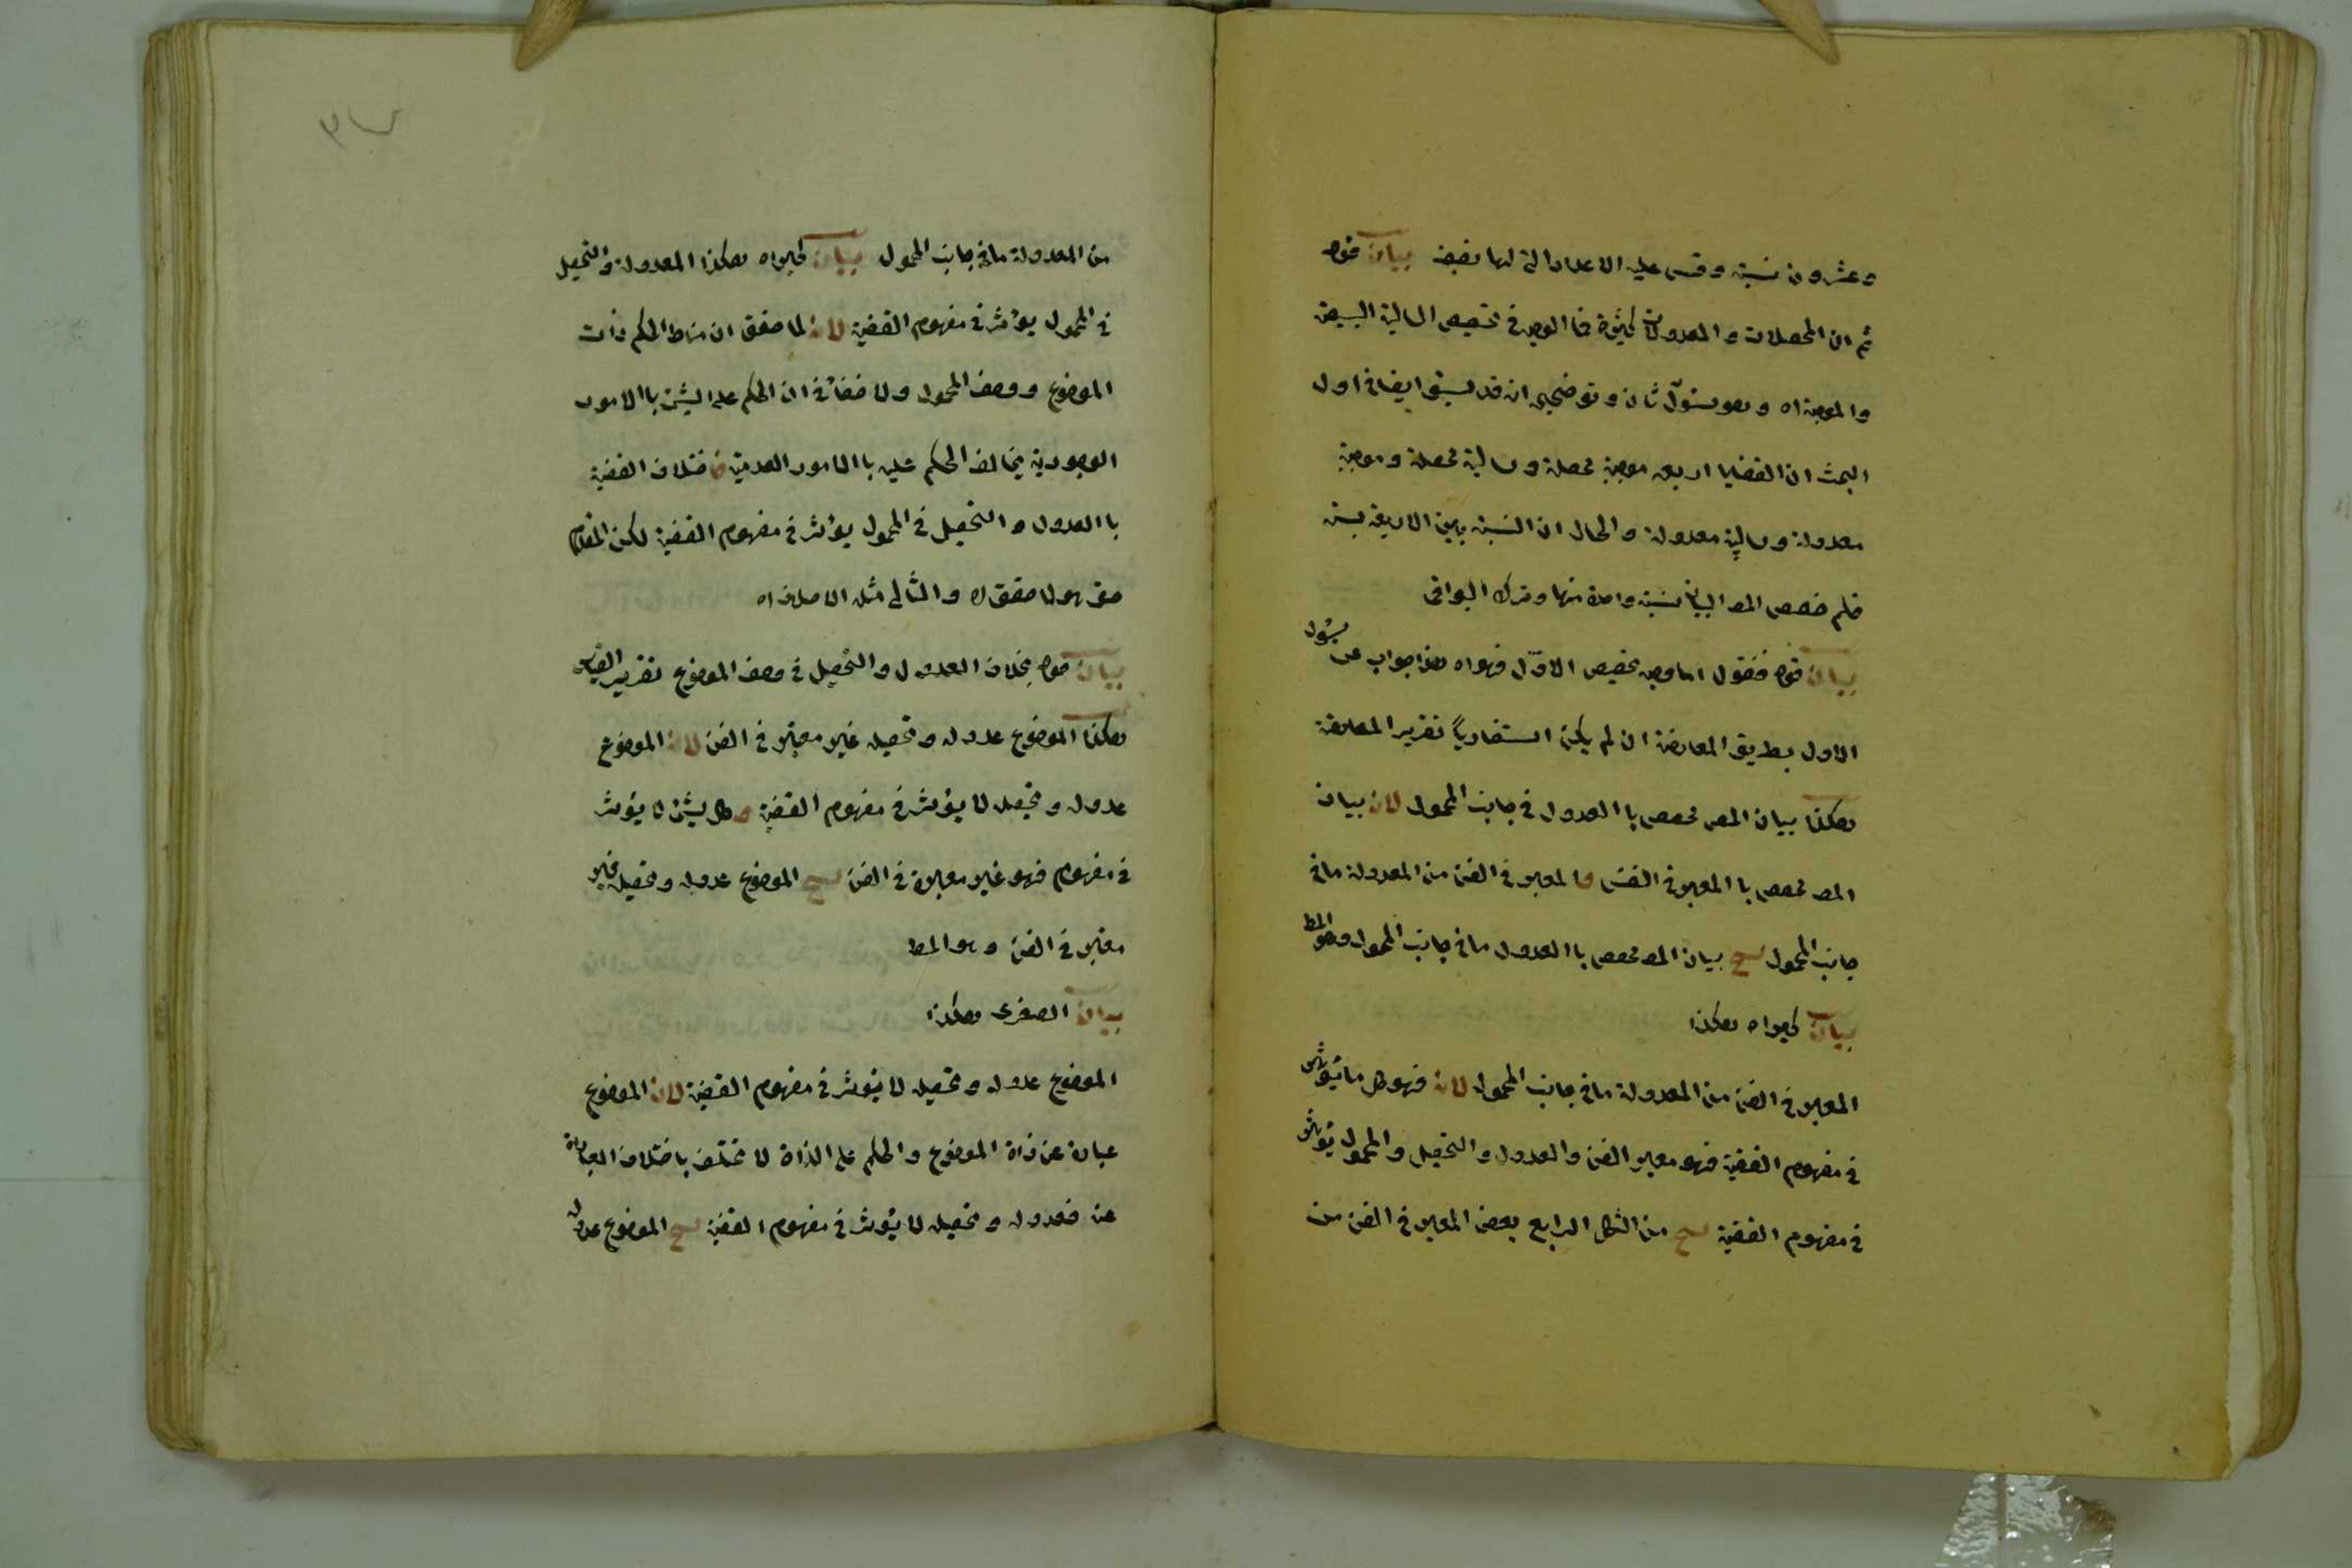 وعشرون نسبة وقس عليه الاعداد التي لها نصف بيان قوله
ثم ان المحصلات والمعدولات كثيرة فما الوجه في تخصيص السالبة البسيطة
والموجبة اه وهو سئول ثان وتوضيحه ان قد سبق ايضا في اول
البحث ان القضايا اربعة موجبة محصلة وسالبة محصلة وموجبة
معدولة وسالبة معدولة والحال ان النسبة بين الاربعة ستة
فلم خصص المص البيان بنسبة واحدة منها وترك البواقي
بيان قوله فنقول اما وجه تخصيص الاول فهو اه هذا جواب عن سئول
الاول بطريق المعارضة ان لم يكن استفسارياً تقرير المعارضة
هكذا بيان المص مخصص با العدول في جانب المحمول لان بيان
المص مخصص با المعبر في الفن والمعبر في الفن من المعدولة ما في
جانب المحمول ينتج بيان المص مخصص با العدول ما في جانب المحمول وهو المط
بيان كبراه هكذا
المعبر في الفن من المعدولة ما في جانب المحمول لانه فهو كل ما يؤثر
في مفهوم القضية فهو معبر الفن والعدول والتحصيل والمحمول يؤثر
في مفهوم القضية ينتج من الشكل الرابع بعض المعبر في الفن من
من المعدولة ما في جانب المحمول بيان كبراه هكذا المعدولة والتحصيل
في المحمول يؤثر في مفهوم القضية لانه لما حقق ان مناط الحكم ذات
الموضوع ووصف المحمول ولا خفاء في ان الحكم على الشئ با الامور
الوجودية يخالف الحكم عليه با الامور العدمية فاختلاف القضية
با العدول والتحصيل في المحمول يؤثر في مفهوم القضية لكن المقدم
حق هو لما حقق اه والتالي مثله الاصلاف اه
بيان قوله بخلاف العدول والتحصيل في وصف الموضوع تقرير القياس
هكذا الموضوع عدوله وتحصيله غير معتبر في الفن لان الموضوع
عدوله وتحصيله لا يؤثر في مفهوم القضية وكل شئ لا يؤثر
في مفهوم فهو غير معبرة في الفن ينتج الموضوع عدوله وتحصيله غير
معتبر في الفن وهو المط
بيان الصغرى هكذا
الموضوع عدوله وتحصيله لا يؤثر في مفهوم القضية لان الموضوع
عبارة عن ذاة الموضوع والحكم على الذاة لا يختلف باختلاف العبارة
عنه فعدوله وتحصيله لا يؤثر في مفهوم القضية ينتج الموضوع عدوله